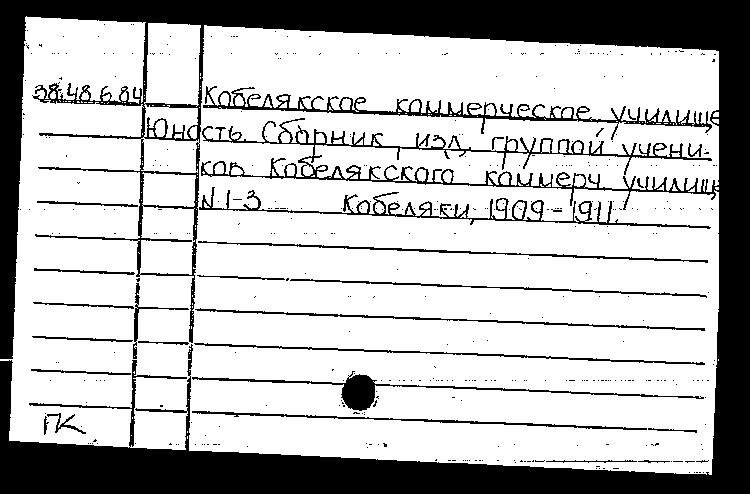 38.48.6.84 Кобелякское коммерческое училище
Юность. Сборник, изд. группой учени-
ков Кобелякского коммерч. училищ
N 1-3 Кобеляки, 1909-1911.
ПК